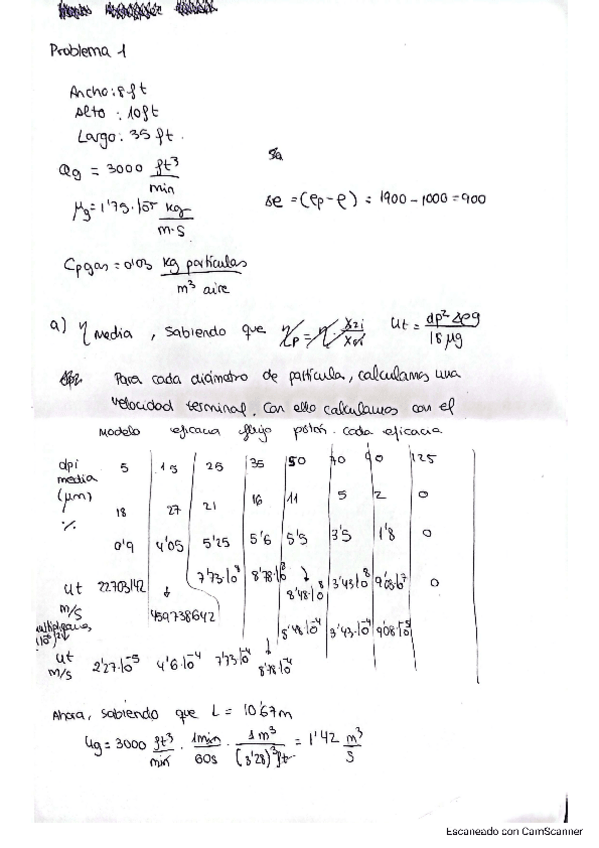 Problema 1
Ancho: 8 ft
Alto : 10 ft
Largo: 35 ft.
Qg = 3000 ft³/min
μg = 1'79·10⁻⁵ kg/m·s
Δe = (ρp - ρ) = 1900 - 1000 = 900
Cpgas = 0'03 kg partículas/m³ aire
a) η media, sabiendo que ηp = η · x2i/ Ut = dp² Δρg/18 μg
Para cada diámetro de partícula, calculamos una
velocidad terminal. Con ello calculamos con el
modelo eficacia flujo pistón. Cada eficacia
dpi media (μm) 5 15 25 35 50 70 90 125
% 18 27 21 16 11 5 2 0
0'9 4'05 5'25 5'6 5'5 3'5 1'8 0
Ut m/s 22703142 459738642 7'73·10⁸ 8'78·10⁸ 8'48·10⁸ 3'43·10⁸ 9'08·10⁷ 0
Ut m/s 2'27·10⁻⁵ 4'6·10⁻⁴ 7'73·10⁻⁴ 8'78·10⁻⁴ 8'48·10⁻⁴ 3'43·10⁻⁴ 9'08·10⁻⁵
Ahora, sabiendo que L = 10'67 m
Ug = 3000 ft³/min · 1min/60s · 1m³/(3'28)³ft = 1'42 m³/s
Escaneado con CamScanner